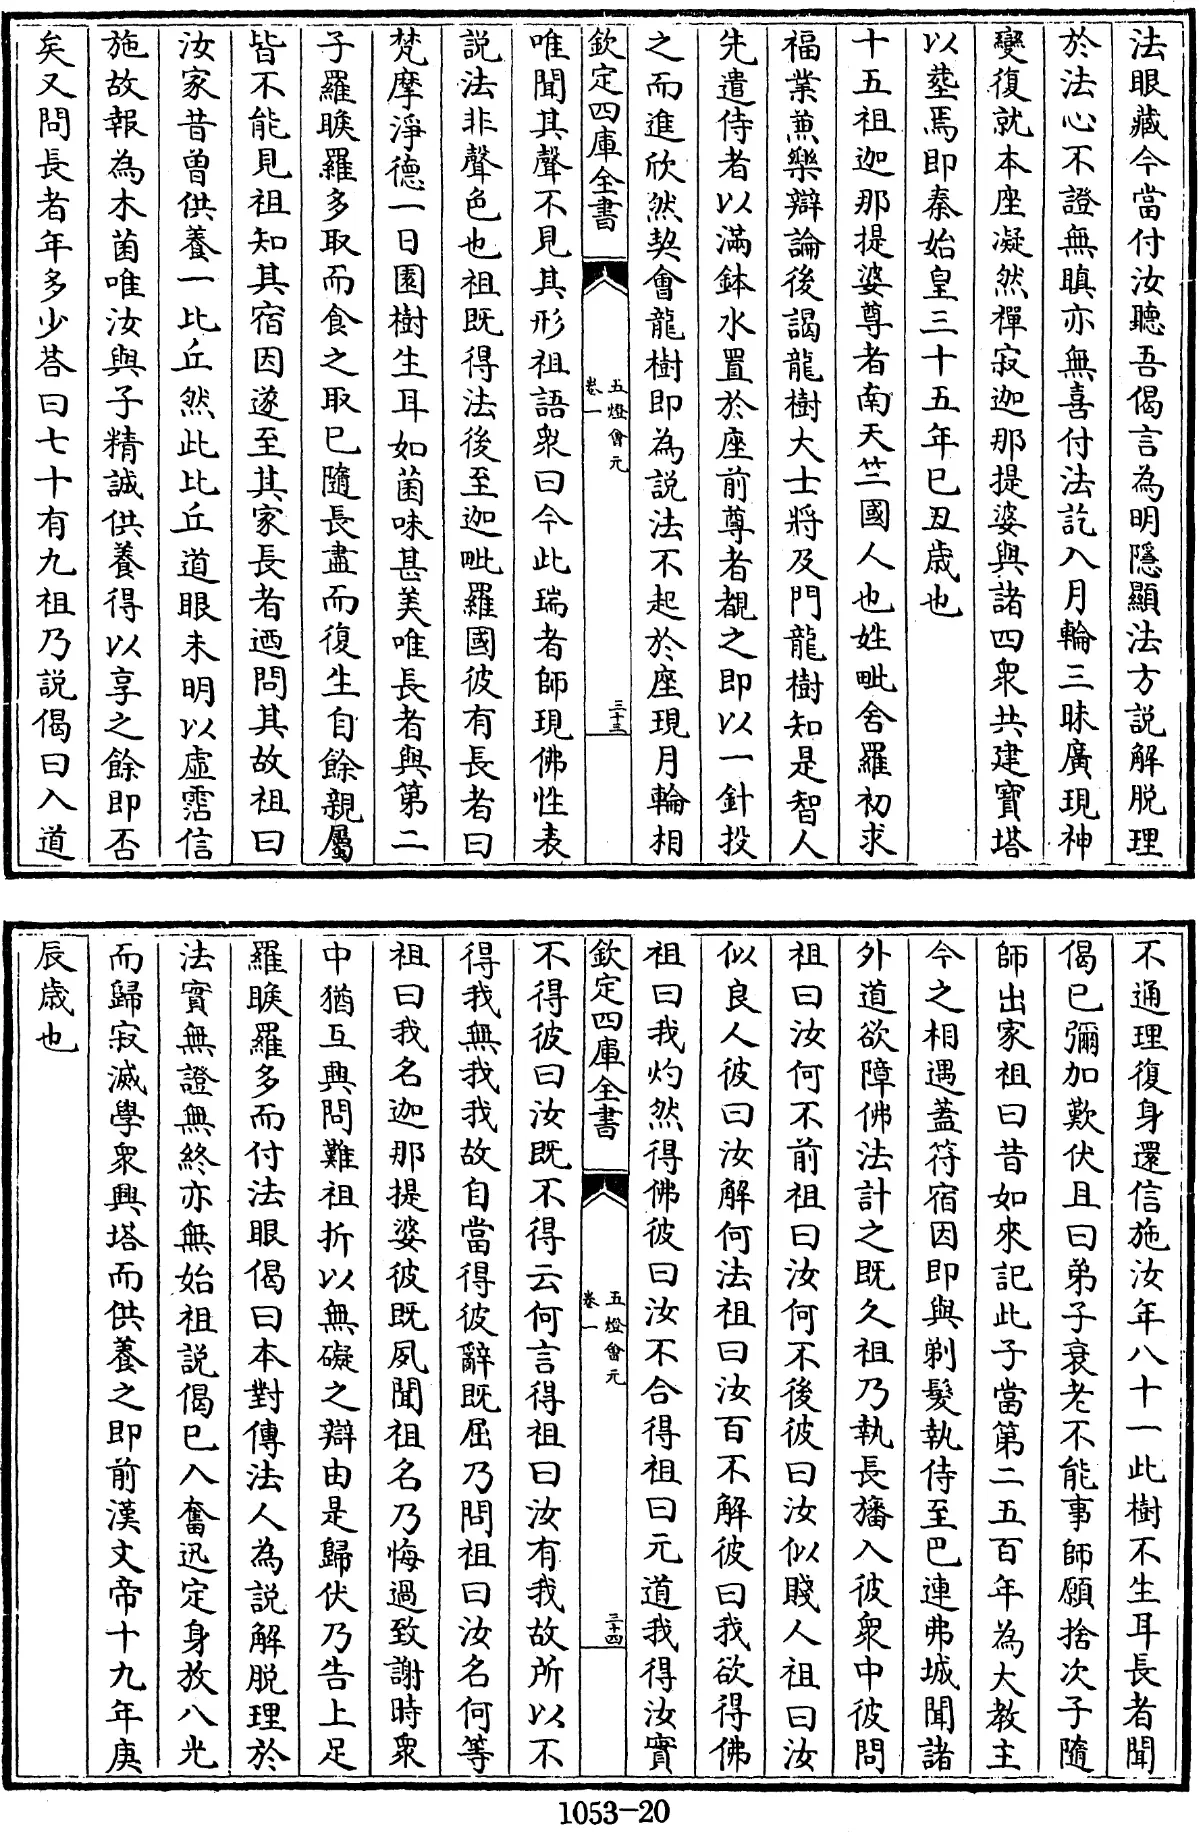 法眼藏今當付汝聽吾偈言為明隱顯法方説解脱理
於法心不證無瞋亦無喜付法訖入月輪三昧廣現神
變復就本座凝然禪寂迦那提婆與諸四衆共建寳塔
以塟焉即秦始皇三十五年已丑歳也
十五祖迦那提婆尊者南天竺國人也姓毗舍羅初求
福業兼樂辯論後謁龍樹大士將及門龍樹知是智人
先遣侍者以滿鉢水置於座前尊者覩之即以一針投
之而進欣然契會龍樹即為説法不起於座現月輪相
欽定四庫全書
五燈會元
卷一
三十三
唯聞其聲不見其形祖語衆曰今此瑞者師現佛性表
説法非聲色也祖既得法後至迦毗羅國彼有長者曰
梵摩淨德一日園樹生耳如菌味甚美唯長者與第二
子羅睺羅多取而食之取已隨長盡而復生自餘親屬
皆不能見祖知其宿因遂至其家長者迺問其故祖曰
汝家昔曾供養一比丘然此比丘道眼未明以虛霑信
施故報為木菌唯汝與子精誠供養得以享之餘即否
矣又問長者年多少荅曰七十有九祖乃説偈曰入道
不通理復身還信施汝年八十一此樹不生耳長者聞
偈已彌加歎伏且曰弟子衰老不能事師願捨次子隨
師出家祖曰昔如來記此子當第二五百年為大教主
今之相遇蓋符宿因即與剃髮執侍至巴連弗城聞諸
外道欲障佛法計之既久祖乃執長旛入彼衆中彼問
祖曰汝何不前祖曰汝何不後彼曰汝似賤人祖曰汝
似良人彼曰汝解何法祖曰汝百不解彼曰我欲得佛
祖曰我灼然得佛彼曰汝不合得祖曰元道我得汝實
欽定四庫全書
五燈會元
卷一
三十四
不得彼曰汝既不得云何言得祖曰汝有我故所以不
得我無我我故自當得彼辭既屈乃問祖曰汝名何等
祖曰我名迦那提婆彼既夙聞祖名乃悔過致謝時衆
中猶互興問難祖折以無礙之辯由是歸伏乃告上足
羅睺羅多而付法眼偈曰本對傳法人為説解脱理於
法實無證無終亦無始祖説偈已入奮迅定身放八光
而歸寂滅學衆興塔而供養之即前漢文帝十九年庚
辰歳也
1053-20